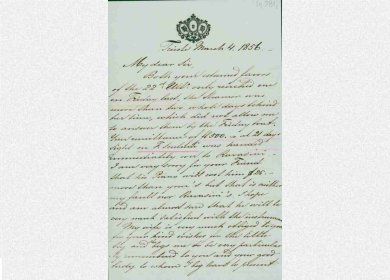 Trieste March 4. 1856.
My dear Sir,
Both your esteemed favors
of the 22d Ult. only reached me
on Friday last, the Steamer was
more than two whole days behind
her time, which did not allow me
to answer them by the Friday boat.
Your remittance of £300. at 21 days
sight on was handed
immediately over to Ravasini.
I am very sorry for your Friend
that his Piano will cost him £25
more than your's but that is neither
my fault nor Ravasini's. I hope
and am almost sure that he will be
very much satisfied with the instrument.
My wife is very much obliged to you
for your kind wishes on the
and begs me to be very particularly
remembered to you and your good
Lady, to whom I beg leave to present